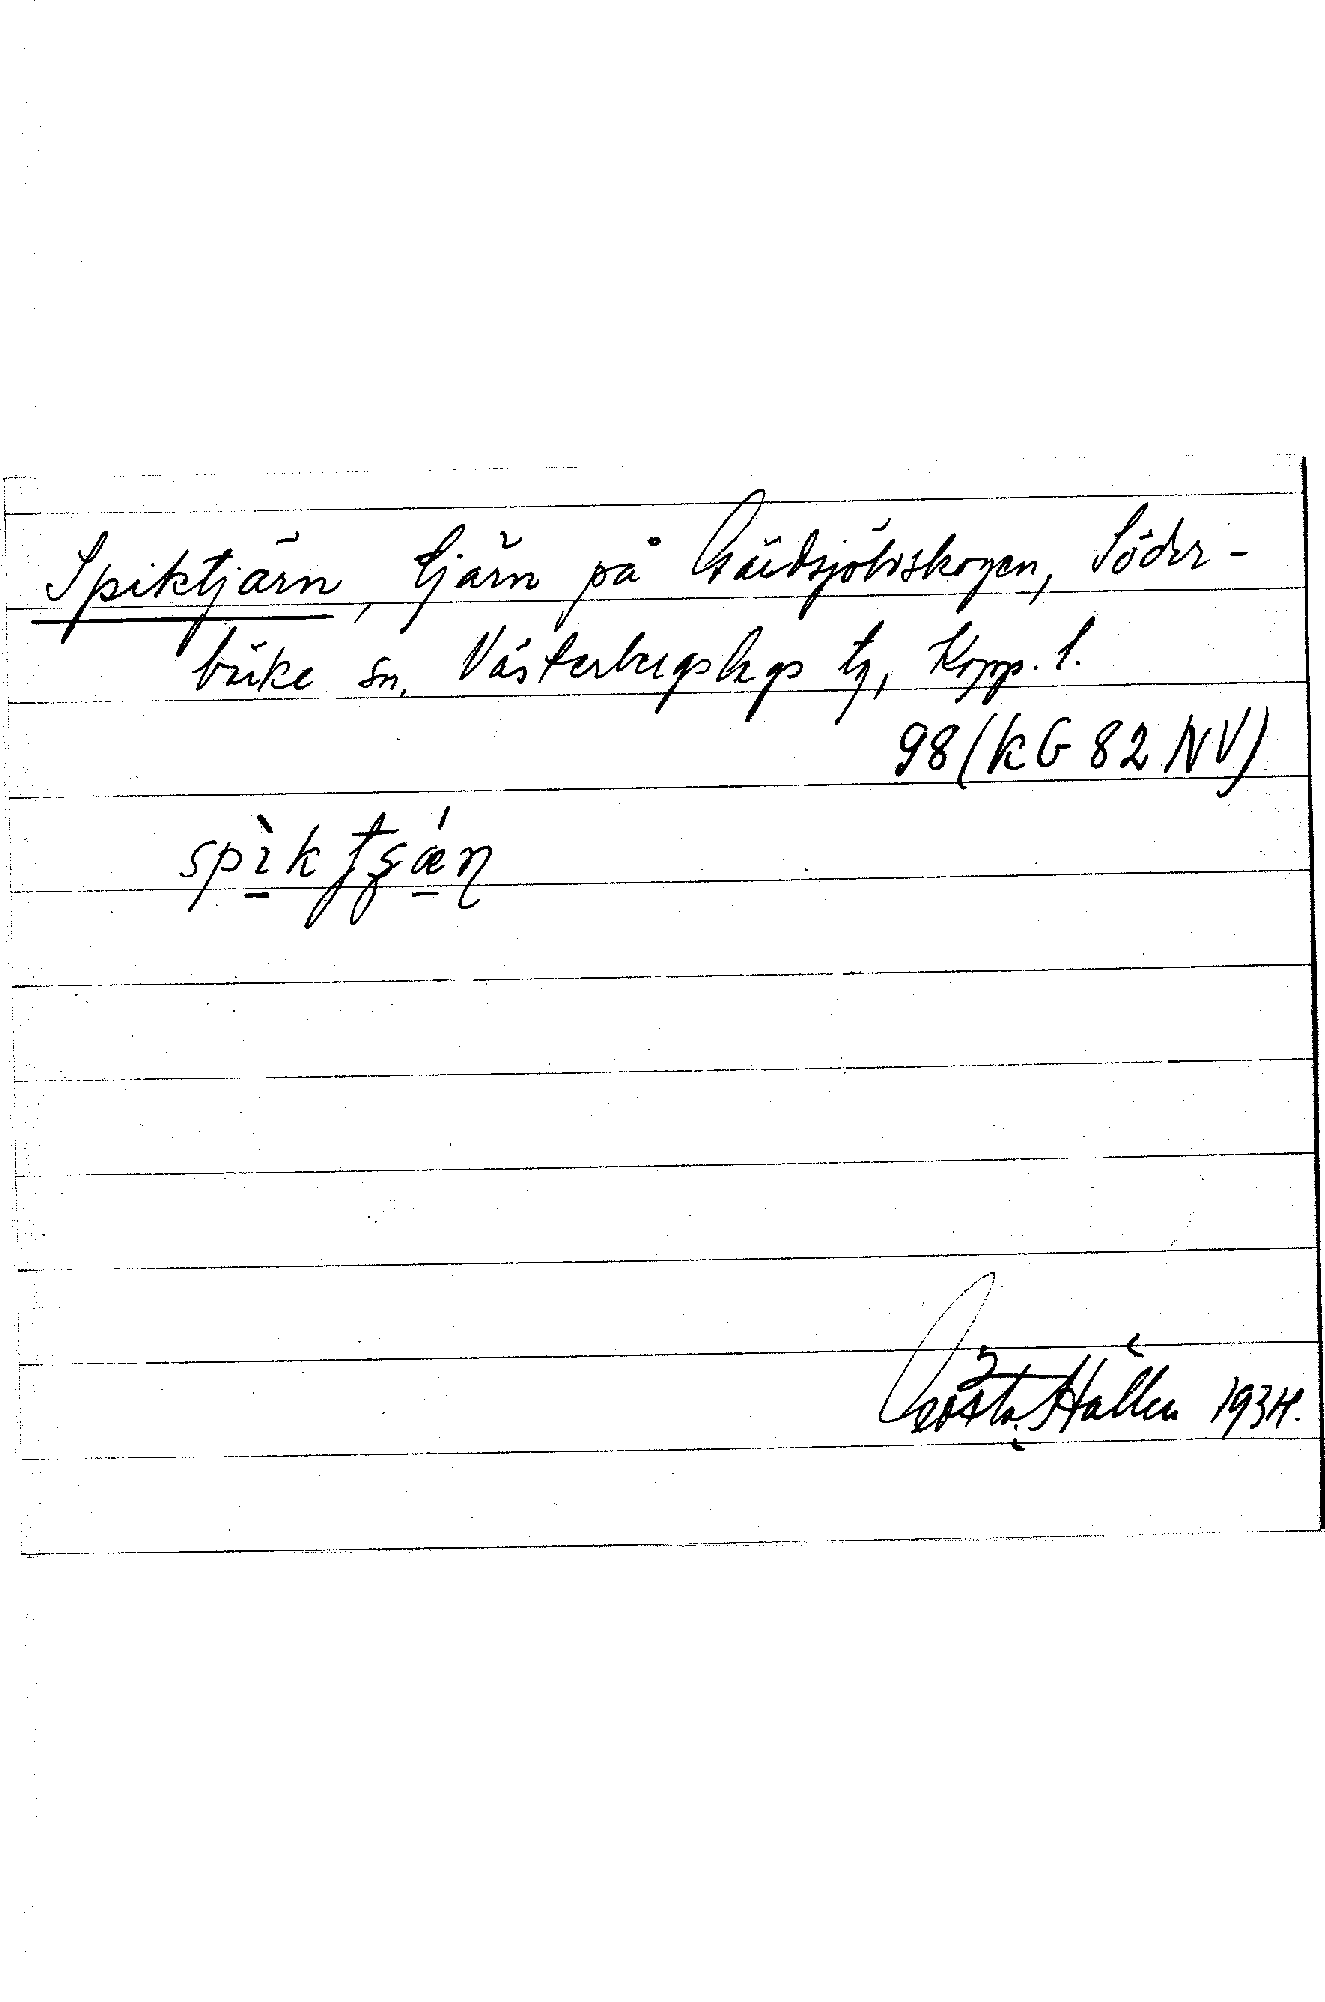 Spiktjärn, tjärn på Gäddsjöboskogen, Söder-
bärke sn, Västerbergslags tg, Kopp. l.
98 (KG 82 NV)
spìktʂǽɳ
Gösta Hallén 1934.